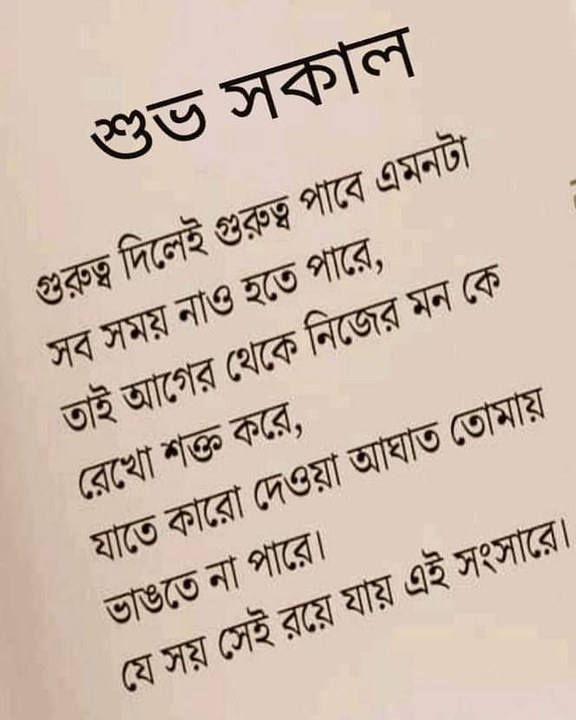 শুভ সকাল
গুরুত্ব দিলেই গুরুত্ব পাবে এমনটা
সব সময় নাও হতে পারে,
তাই আগের থেকে নিজের মন কে
রেখো শক্ত করে,
যাতে কারো দেওয়া আঘাত তোমায়
ভাঙতে না পারে।
যে সয় সেই রয়ে যায় এই সংসারে।